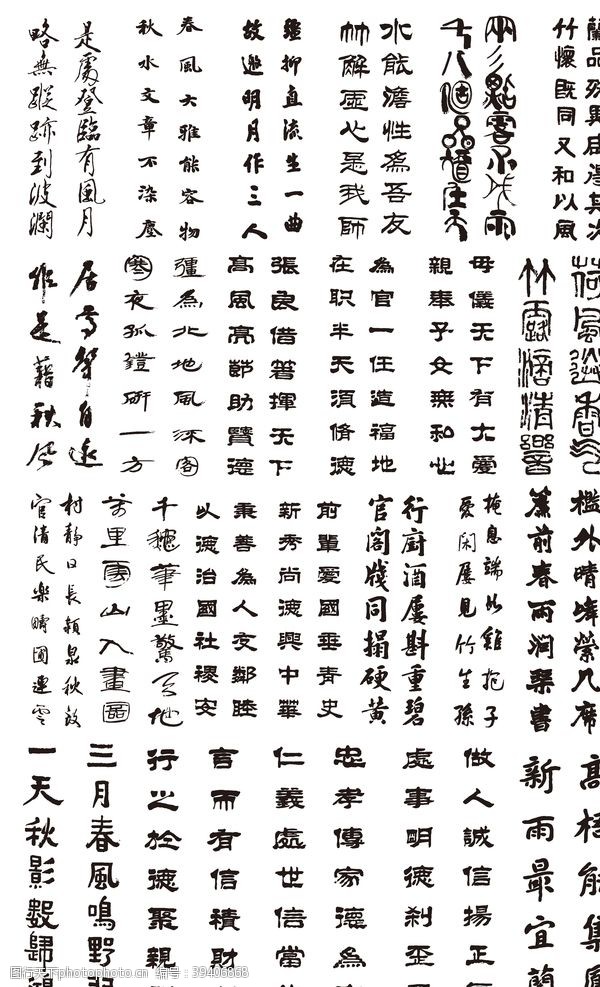 竹懷既同又和以風
兩三點露不成雨
七八個星猶在天
水能澹性為吾友
竹解虛心是我師
強抑直流生一曲
故邀明月作三人
春風大雅能容物
秋水文章不染塵
是處登臨有風月
略無蹤跡到波瀾
荷風送香氣
竹露滴清響
母儀天下有大愛
親奉子女無私心
為官一任造福地
在职半天須脩德
張良借箸揮天下
高風亮節助賢德
為北地風深客
寒夜孤鐙研一方
居高聲自遠
非是藉秋風
檻外晴峰縈几席
簾前春雨润琴書
掩息端如雞抱子
愛閑屢見竹生孫
行廚酒屢斟重碧
官閣牋同搨硬黃
前輩愛國垂青史
新秀尚德興中華
秉善為人友鄰睦
以德治國社稷安
千穐筆墨驚天地
萬里雲山入畫圖
村靜日長
官清民樂
高梧能集鳳
新雨最宜蘭
做人誠信揚正
處事明德剎歪
忠孝傳家德為
仁義處世信當
言而有信積財
行之於德聚親
三月春風鳴野
一天秋影數歸
图行天下photophoto.cn 编号:39406868